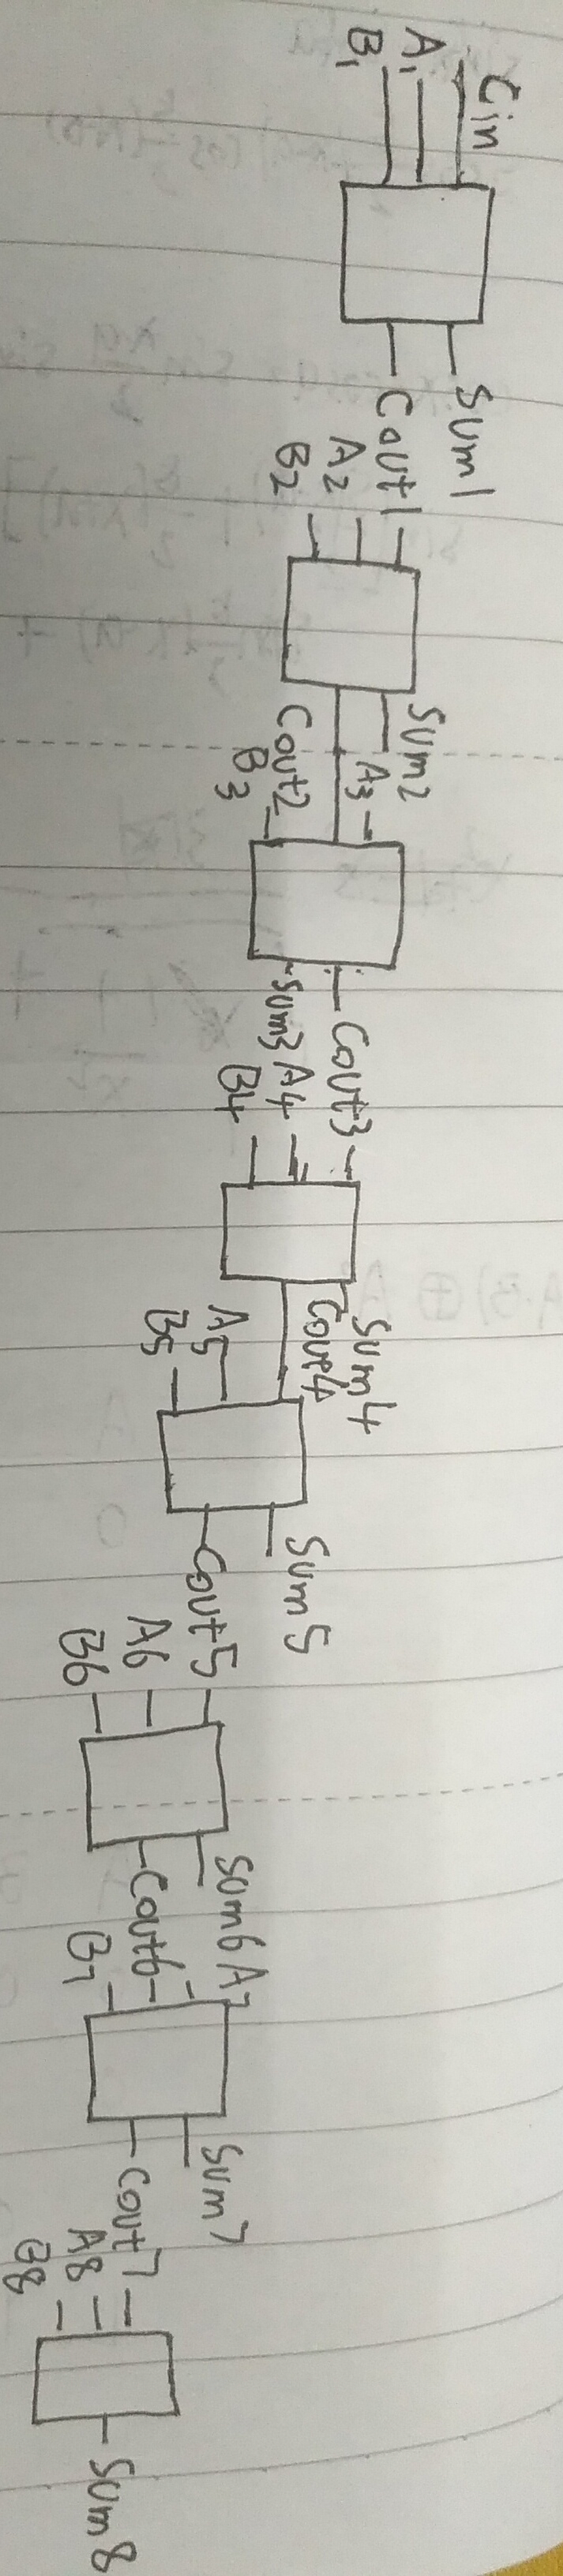 Cin
A1
B1
Sum1
Cout1
A2
B2
Sum2
Cout2
A3
B3
Cout3
Sum3
A4
B4
Sum4
Cout4
A5
B5
Sum5
Cout5
A6
B6
Sum6
Cout6
A7
B7
Sum7
Cout7
A8
B8
Sum8